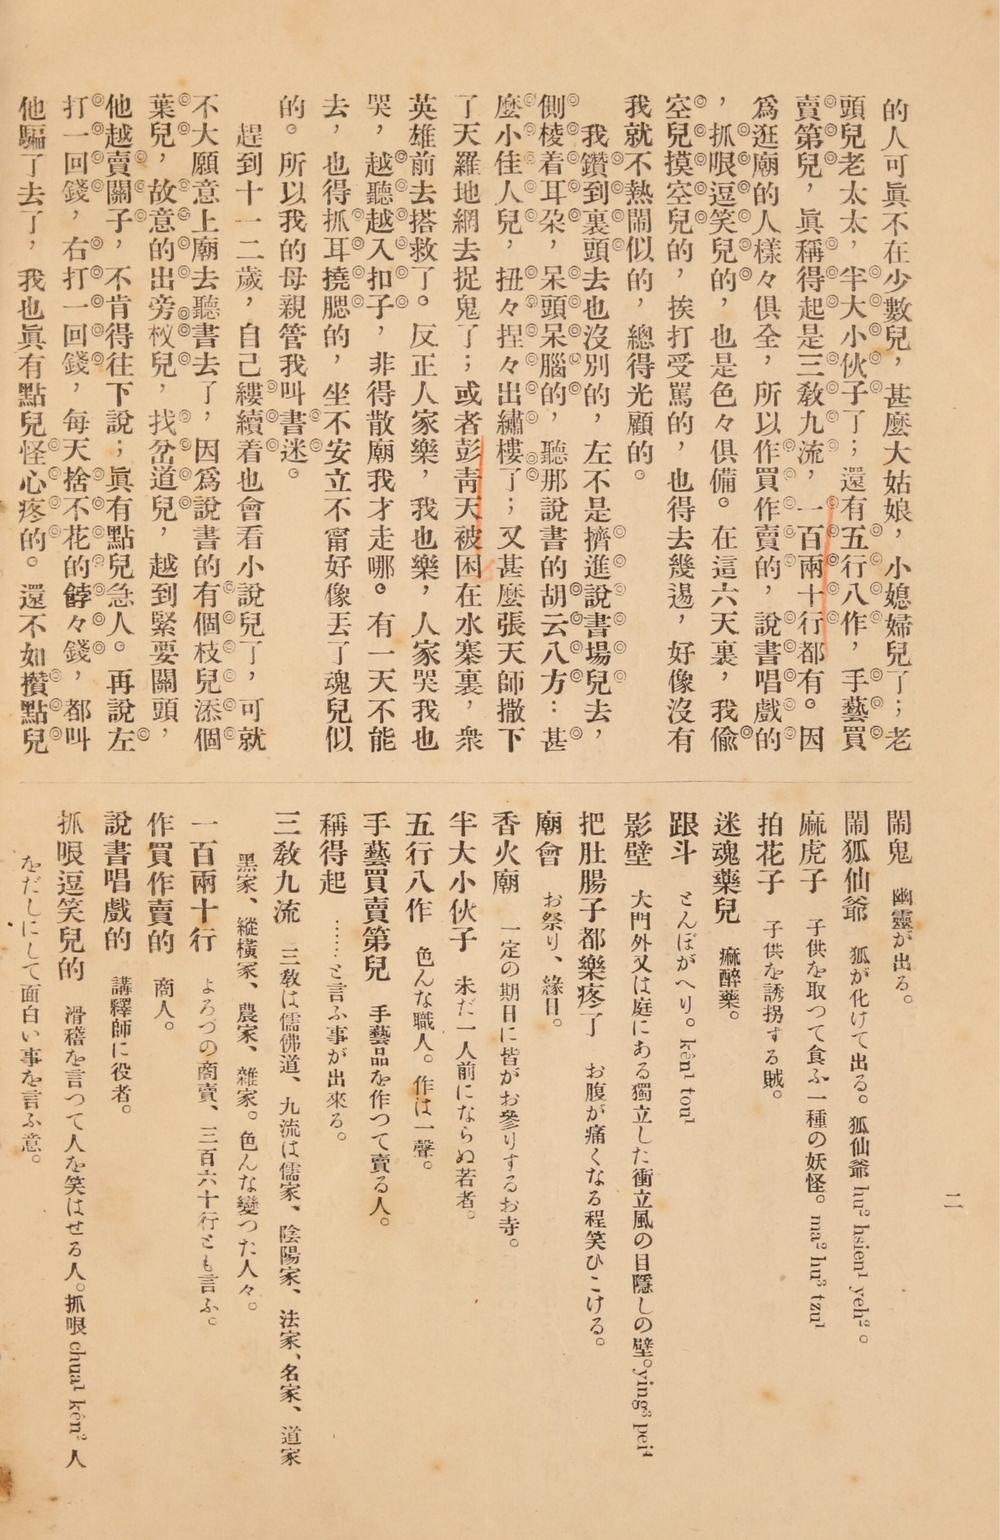 的人可眞不在少數兒，甚麼大姑娘，小媳婦兒了；老
頭兒老太太，半大小伙子了；還有五行八作，手藝買
賣第兒，眞稱得起是三敎九流，一百兩十行都有。因
爲逛廟的人樣々俱全，所以作買作賣的，說書唱戲的
，抓哏逗笑兒的，也是色々俱備。在這六天裏，我偸
空兒摸空兒的，挨打受罵的，也得去幾遏，好像沒有
我就不熱鬧似的，總得光顧的。
我鑽到裏頭去也沒別的，左不是擠進說書場兒去，
側棱着耳朵，呆頭呆腦的，聽那說書的胡云八方：甚
麼小佳人兒，扭々捏々出繡樓了；又甚麼張天師撒下
了天羅地網去捉鬼了；或者彭靑天被困在水寨裏，衆
英雄前去搭救了。反正人家樂，我也樂，人家哭我也
哭，越聽越入扣子，非得散廟我才走哪。有一天不能
去，也得抓耳撓腮的，坐不安立不甯好像丟了魂兒似
的。所以我的母親管我叫書迷。
趕到十一二歲，自己縷續着也會看小說兒了，可就
不大願意上廟去聽書去了，因爲說書的有個枝兒添個
葉兒，故意的出旁杈兒，找岔道兒，越到緊要關頭，
他越賣關子，不肯得往下說；眞有點兒急人。再說左
打一回錢，右打一回錢，每天捨不花的餑々錢，都叫
他騙了去了，我也眞有點兒怪心疼的。還不如攢點兒
鬧鬼　幽靈が出る。
鬧狐仙爺　狐が化けて出る。狐仙爺 hu² hsien¹ yeh²。
麻虎子　子供を取つて食ふ一種の妖怪。ma² hu³ tzu¹
拍花子　子供を誘拐する賊。
迷魂藥兒　痲醉藥。
跟斗　とんぼがへり。kên¹ tou¹
影壁　大門外又は庭にある獨立した衝立風の目隱しの壁。ying³ pei⁴
把肚腸子都樂疼了　お腹が痛くなる程笑ひこける。
廟會　お祭り、緣日。
香火廟　一定の期日に皆がお參りするお寺。
半大小伙子　未だ一人前にならぬ若者。
五行八作　色んな職人。作は一聲。
手藝買賣第兒　手藝品を作つて賣る人。
稱得起　……と言ふ事が出來る。
三敎九流　三敎は儒佛道、九流は儒家、陰陽家、法家、名家、道家
黑家、縱橫家、農家、雜家。色んな變つた人々。
一百兩十行　よろづの商賣、三百六十行とも言ふ。
作買作賣的　商人。
說書唱戲的　講釋師に役者。
抓哏逗笑兒的　滑稽を言つて人を笑はせる人。抓哏 chua¹ kên² 人
をだしにして面白い事を言ふ意。
二